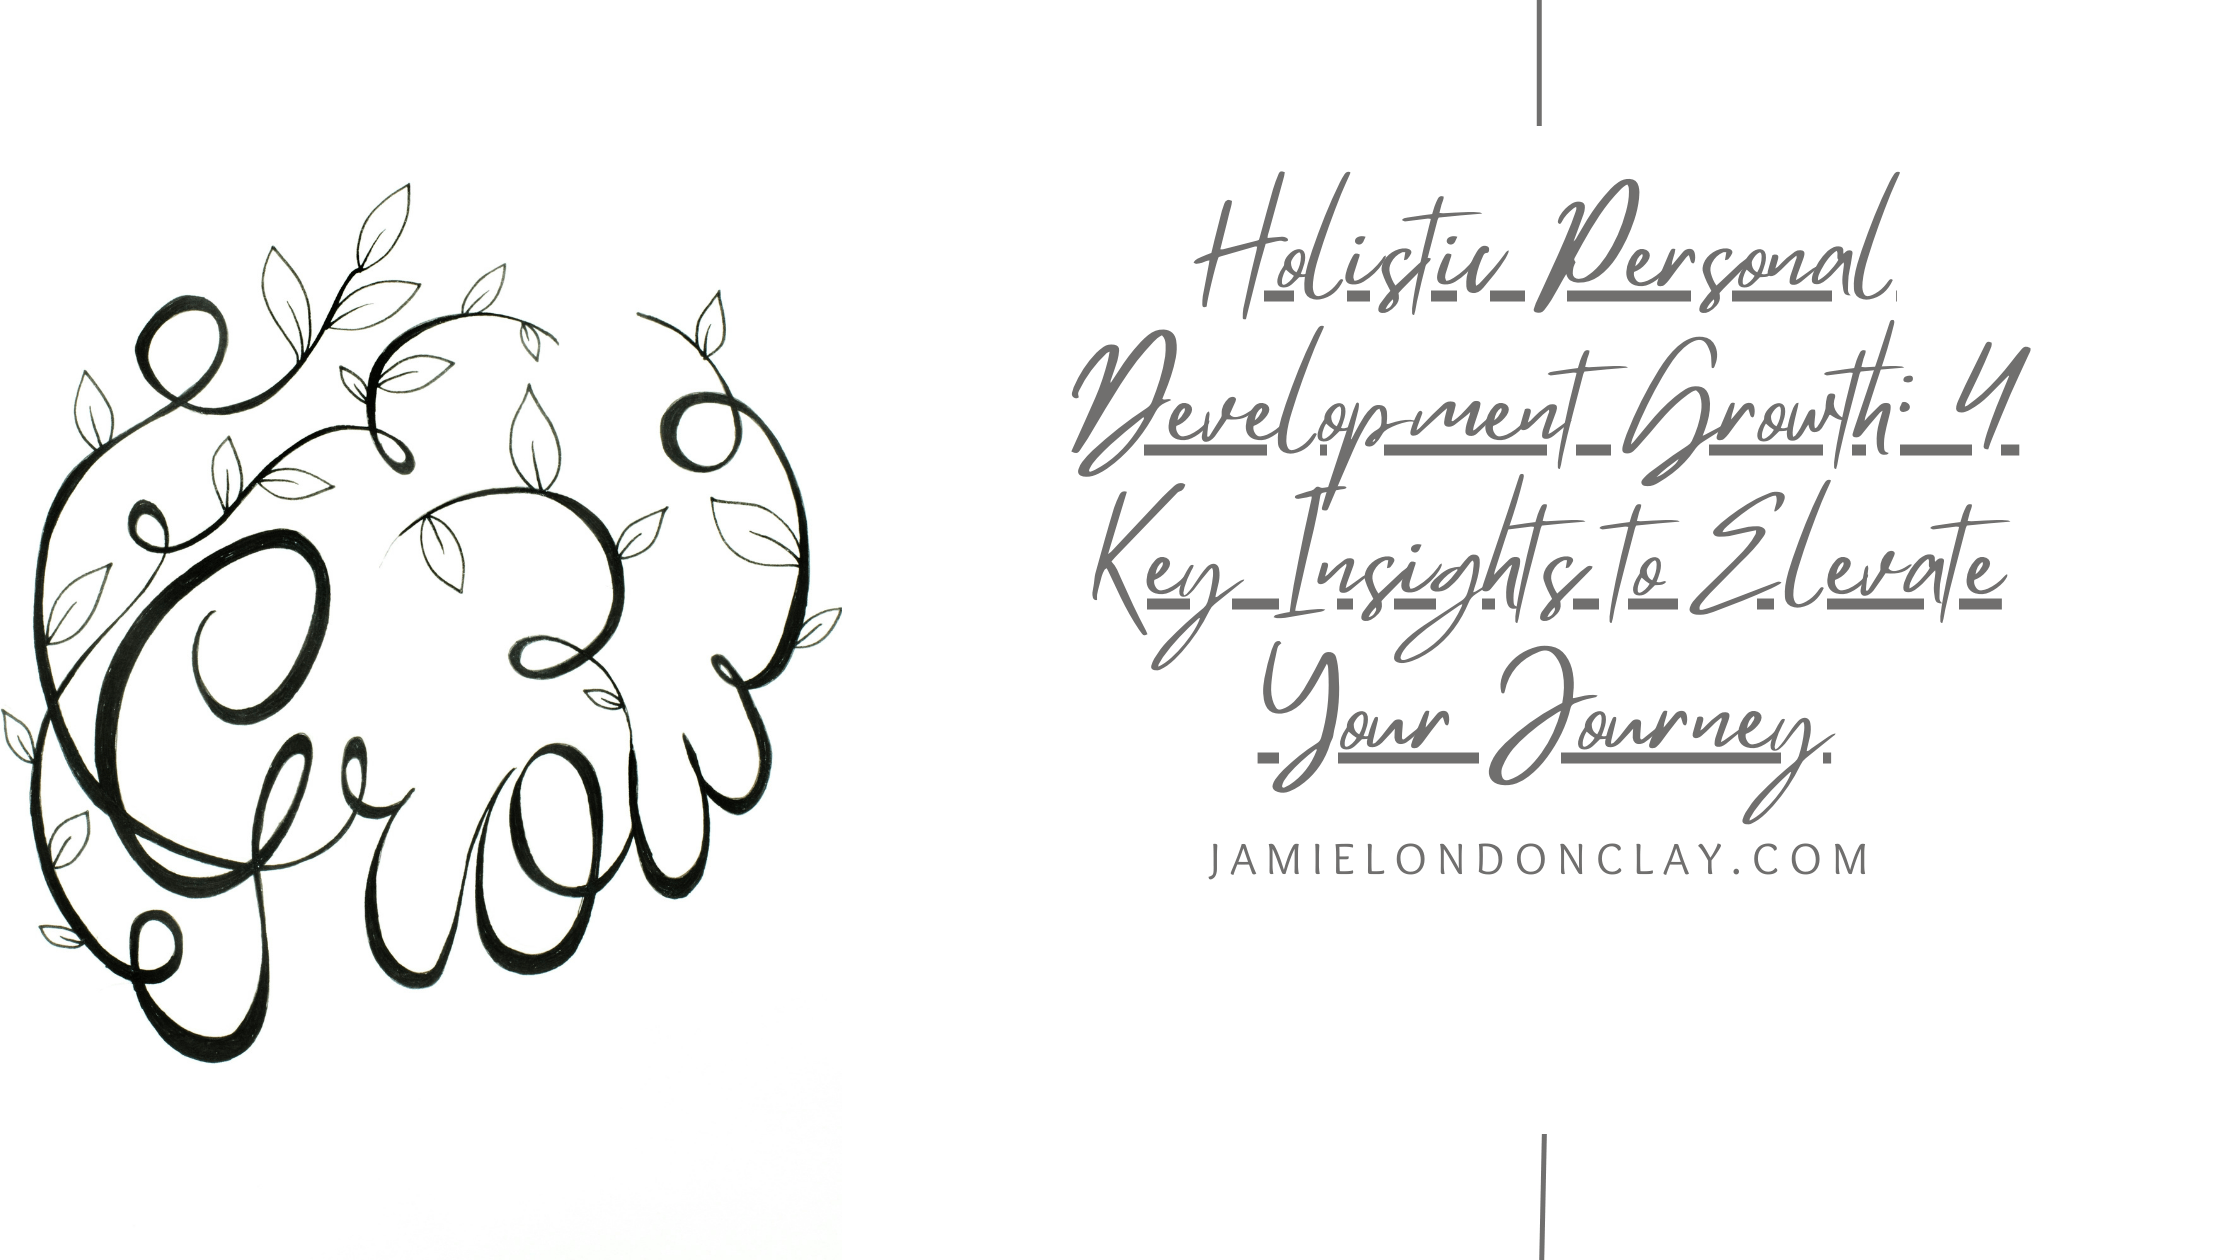 Grow
Holistic Personal
Development Growth: 4
Key Insights to Elevate
Your Journey
JAMIELONDONCLAY.COM